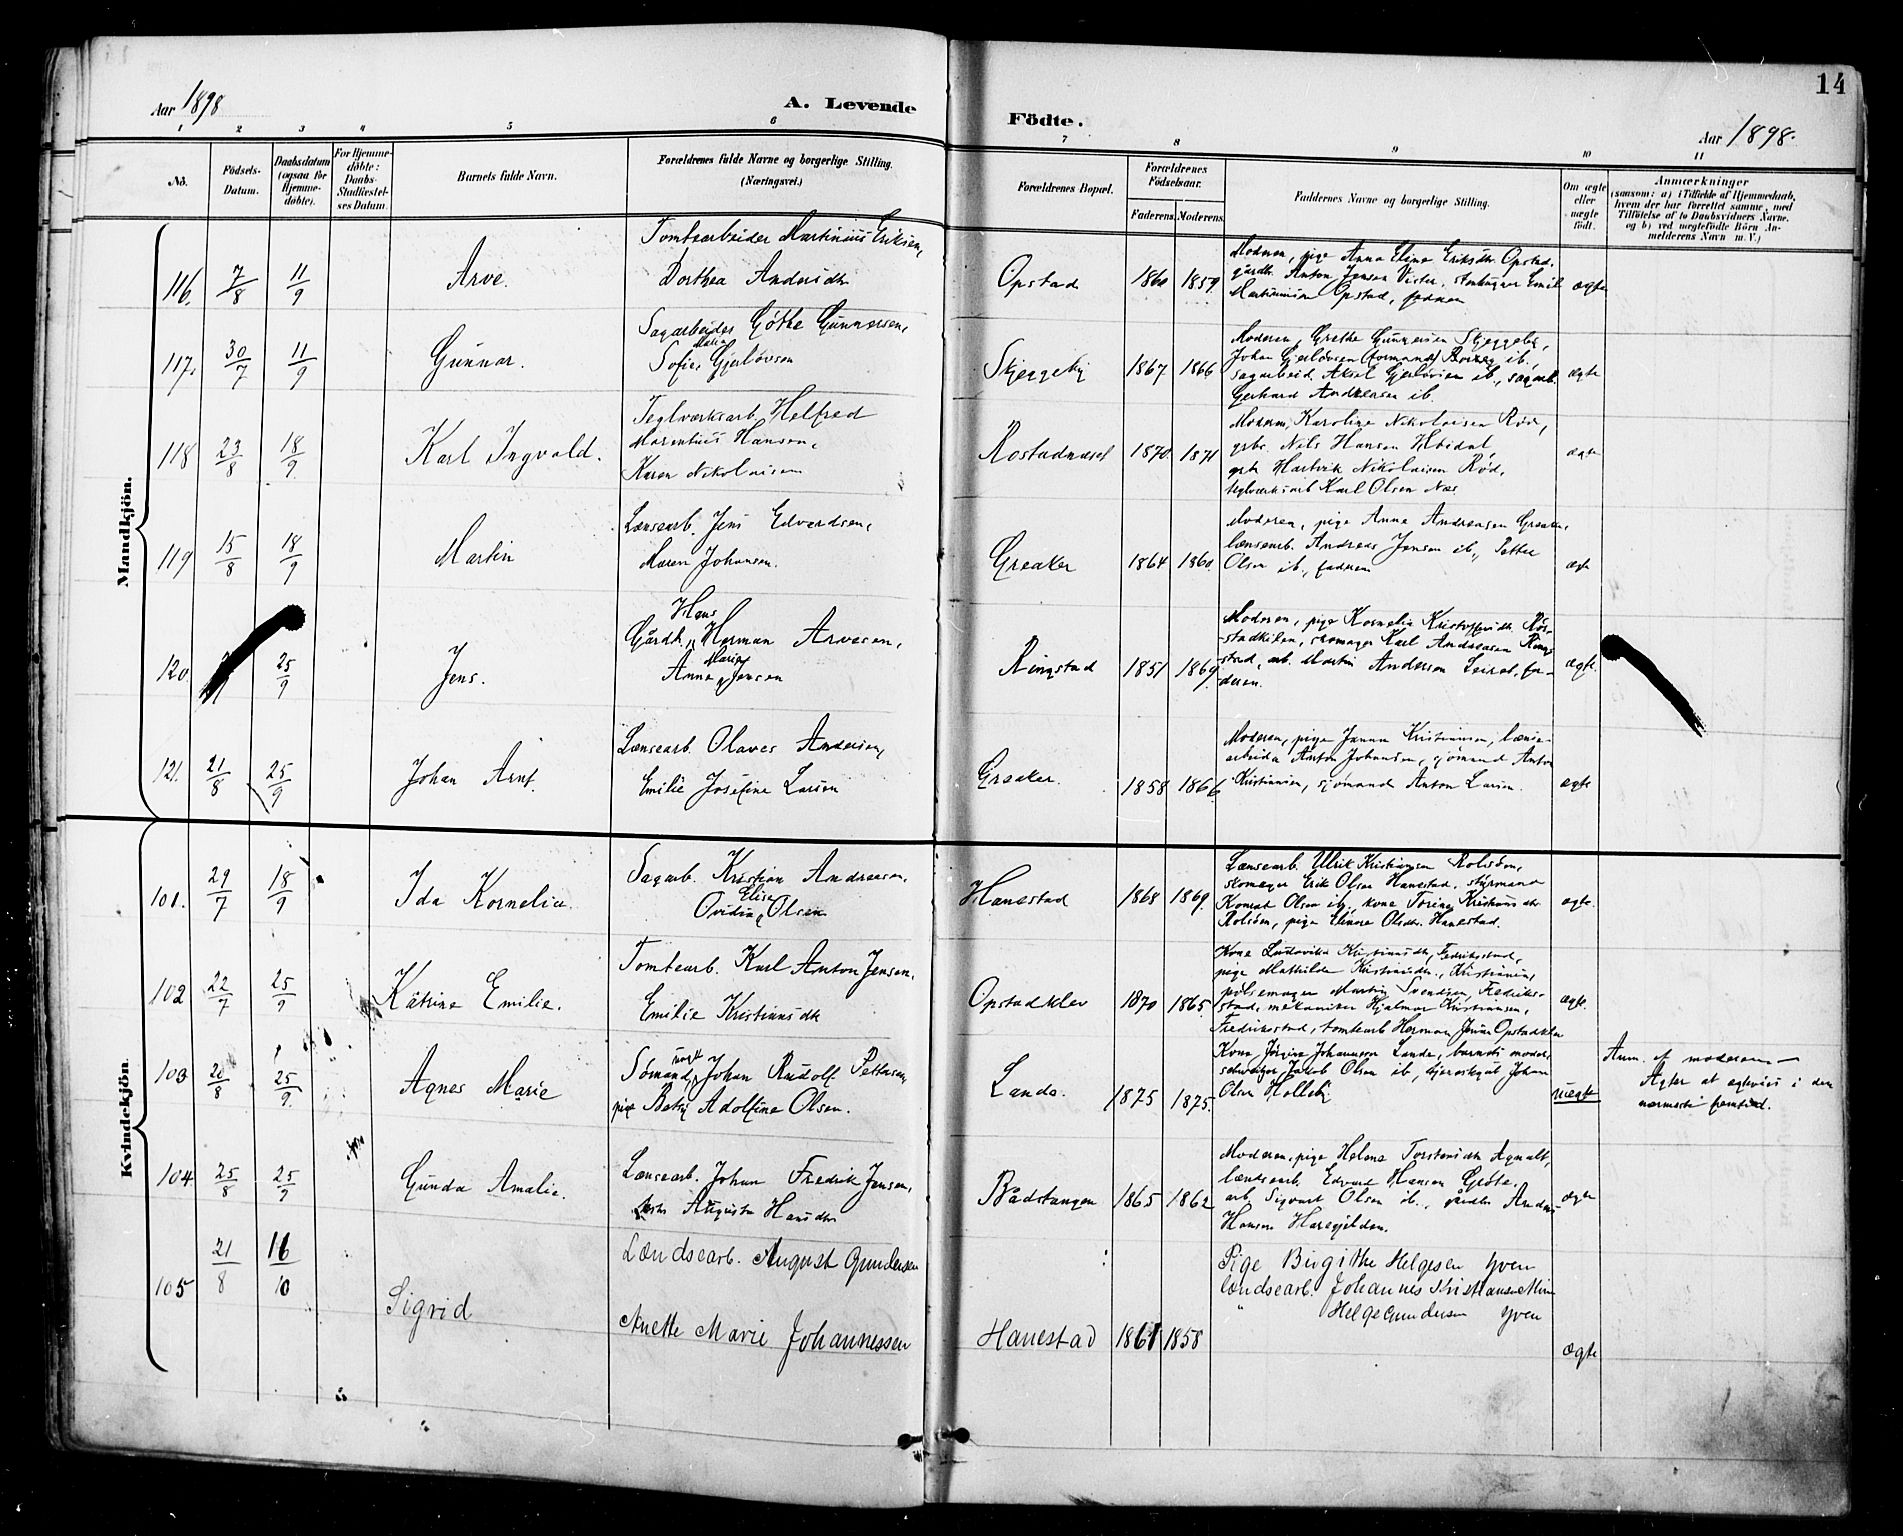 14
Aar 1898
A. Levende
Födte.
Aar 1898.
1 2 3 4 5 6 7 8 9 10 11
No.
Födsels-Datum.
Daabsdatum (ogsaa for Hjemme-döbte).
For Hjemme-döbte: Daabs-Stadfæstel-ses Datum.
Barnets fulde Navn.
Forældrenes fulde Navne og borgerlige Stilling. (Næringsvei.)
Forældrenes Bopæl.
Forældrenes Födselsaar.
Faderens. Moderens.
Faddernes Navne og borgerlige Stilling.
Om ægte eller uægte födt.
Anmærkninger
(saasom: a) i Tilfælde af Hjemmedaab, hvem der har forrettet samme, med Tilföielse af to Daabsvidners Navne. og b) ved uægtefödte Börn An-melderens Navn m. V.)
Mandkjön.
116. 7/8 11/9 Arve.
Tomtearbeider Martinius Eriksen,
Dorthea Andersdtr
Opstad 1860 1859.
Moderen, pige Anna Eline Eriksdtr. Opstad.
gårdbr. Anton Jensen Vister, stenhugger Emil
Martinusen Opstad, faderen
ægte
117. 30/7 11/9 Gunnar.
Sagarbeider Göthe Gunnersen,
Sofie Maria Gjerløvsen
Skjeggeby 1867 1866
Moderen, Grethe Gunnersen Skjeggeby,
Johan Gjerløvsen (formand) Borreg ib.
sagarbeid. Aksel Gjerløvsen ib., sagarb.
Gerhard Andreasen ib.
ægte
118 23/8 18/9 Karl Ingvald.
Teglværksarb. Helfred
Morentius Hansen,
Karen Nikolaisen
Rostadnæset 1870 1871
Moderen, Karoline Nikolaisen Rød,
grbr. Nils Hansen Høidal,
grbr. Hartvik Nikolaisen Rød,
teglværksarb Karl Olsen Næs
ægte
119 15/8 18/9 Martin
Lænsearb. Jens Edvardsen,
Maren Johansen.
Greaker 1864 1860.
Moderen, pige Anna Andreasen Greaker,
lænsearb. Andreas Jensen ib., Petter
Olsen ib., faderen
ægte
120. 25/9 Jens.
Gårdbr. Hans Herman Arvesen,
Anne Marie Jensen
Ringstad 1851 1869.
Moderen, pige Kornelia Kristoffersdtr. Rös-
stadkilen, skomager Karl Andreasen Ring-
stad, arb. Martin Andersen Leirat, fa-
deren.
ægte.
121. 21/8 25/9 Johan Arnt.
Lænsearb. Olaves Andersen,
Emilie Josefine Larsen
Greaker. 1858 1866.
Moderen, pige Janna Kristiansen, lænse-
arbeider Anton Johansen, sjömand Anton
Kristiansen, sjömand Anton Larsen.
ægte
Kvindekjön
101. 29/7 18/9 Ida Kornelia.
Sagarb. Kristian Andreasen,
Ovidia Elise Olsen
Hanestad 1868 1869.
Lænsearb. Ulrik Kristiansen Rolsöen,
skomager Erik Olsen Hanestad, styrmand
Konrat Olsen ib., kone Torine Kristiansdtr
Rolsöen, pige Elenore Olsdtr. Hanestad.
ægte.
102 22/7 25/9 Katrine Emilie.
Tomtearb. Karl Anton Jensen,
Emilie Kristiansdtr
Opstadklev 1870 1865.
Kone Ludovika Kristiansdtr, Fredriksstad,
pige Mathilde Kristiansdtr., Kristiania,
pølsemager Martin Svendsen, Fredriks-
stad, mekaniker Hjalmar Kristiansen,
Fredriksstad, tomtearb Herman Jensen Opstadklev
ægte.
103 20/8 25/9. Agnes Marie
Sömand ungk. Johan Rudolf Pettersen,
pige Betzy Adolfine Olsen.
Lande. 1875 1875.
Kone Jörgine Johannesen Lande, barnets moder,
Jakob Olsen ib., Johan
Olsen Holleby
uægte
Anm. af moderen —
Agter at egtevies i den
nærmeste fremtid.
104 25/8 25/9 Gunda Amalie.
Lænsearb. Johan Fredrik Jensen,
Augusta Hansdtr
Bådstangen 1865 1862
Moderen, pige Helene Torstensdtr Agnalt,
lændsearb. Edvard Hansen Gröte,
arb. Sigvart Olsen ib., gårdbr. Anders
Hansen Haregjilden.
ægte
105 21/8 16/10 Sigrid
Lændsearb. August Gundersen
Anette Marie Johannessen
Hanestad 1861 1858
Pige Birgithe Helgesen Yven
lændsearb. Johannes Kristiansen Min
" Helge Gundersen Yven
ægte